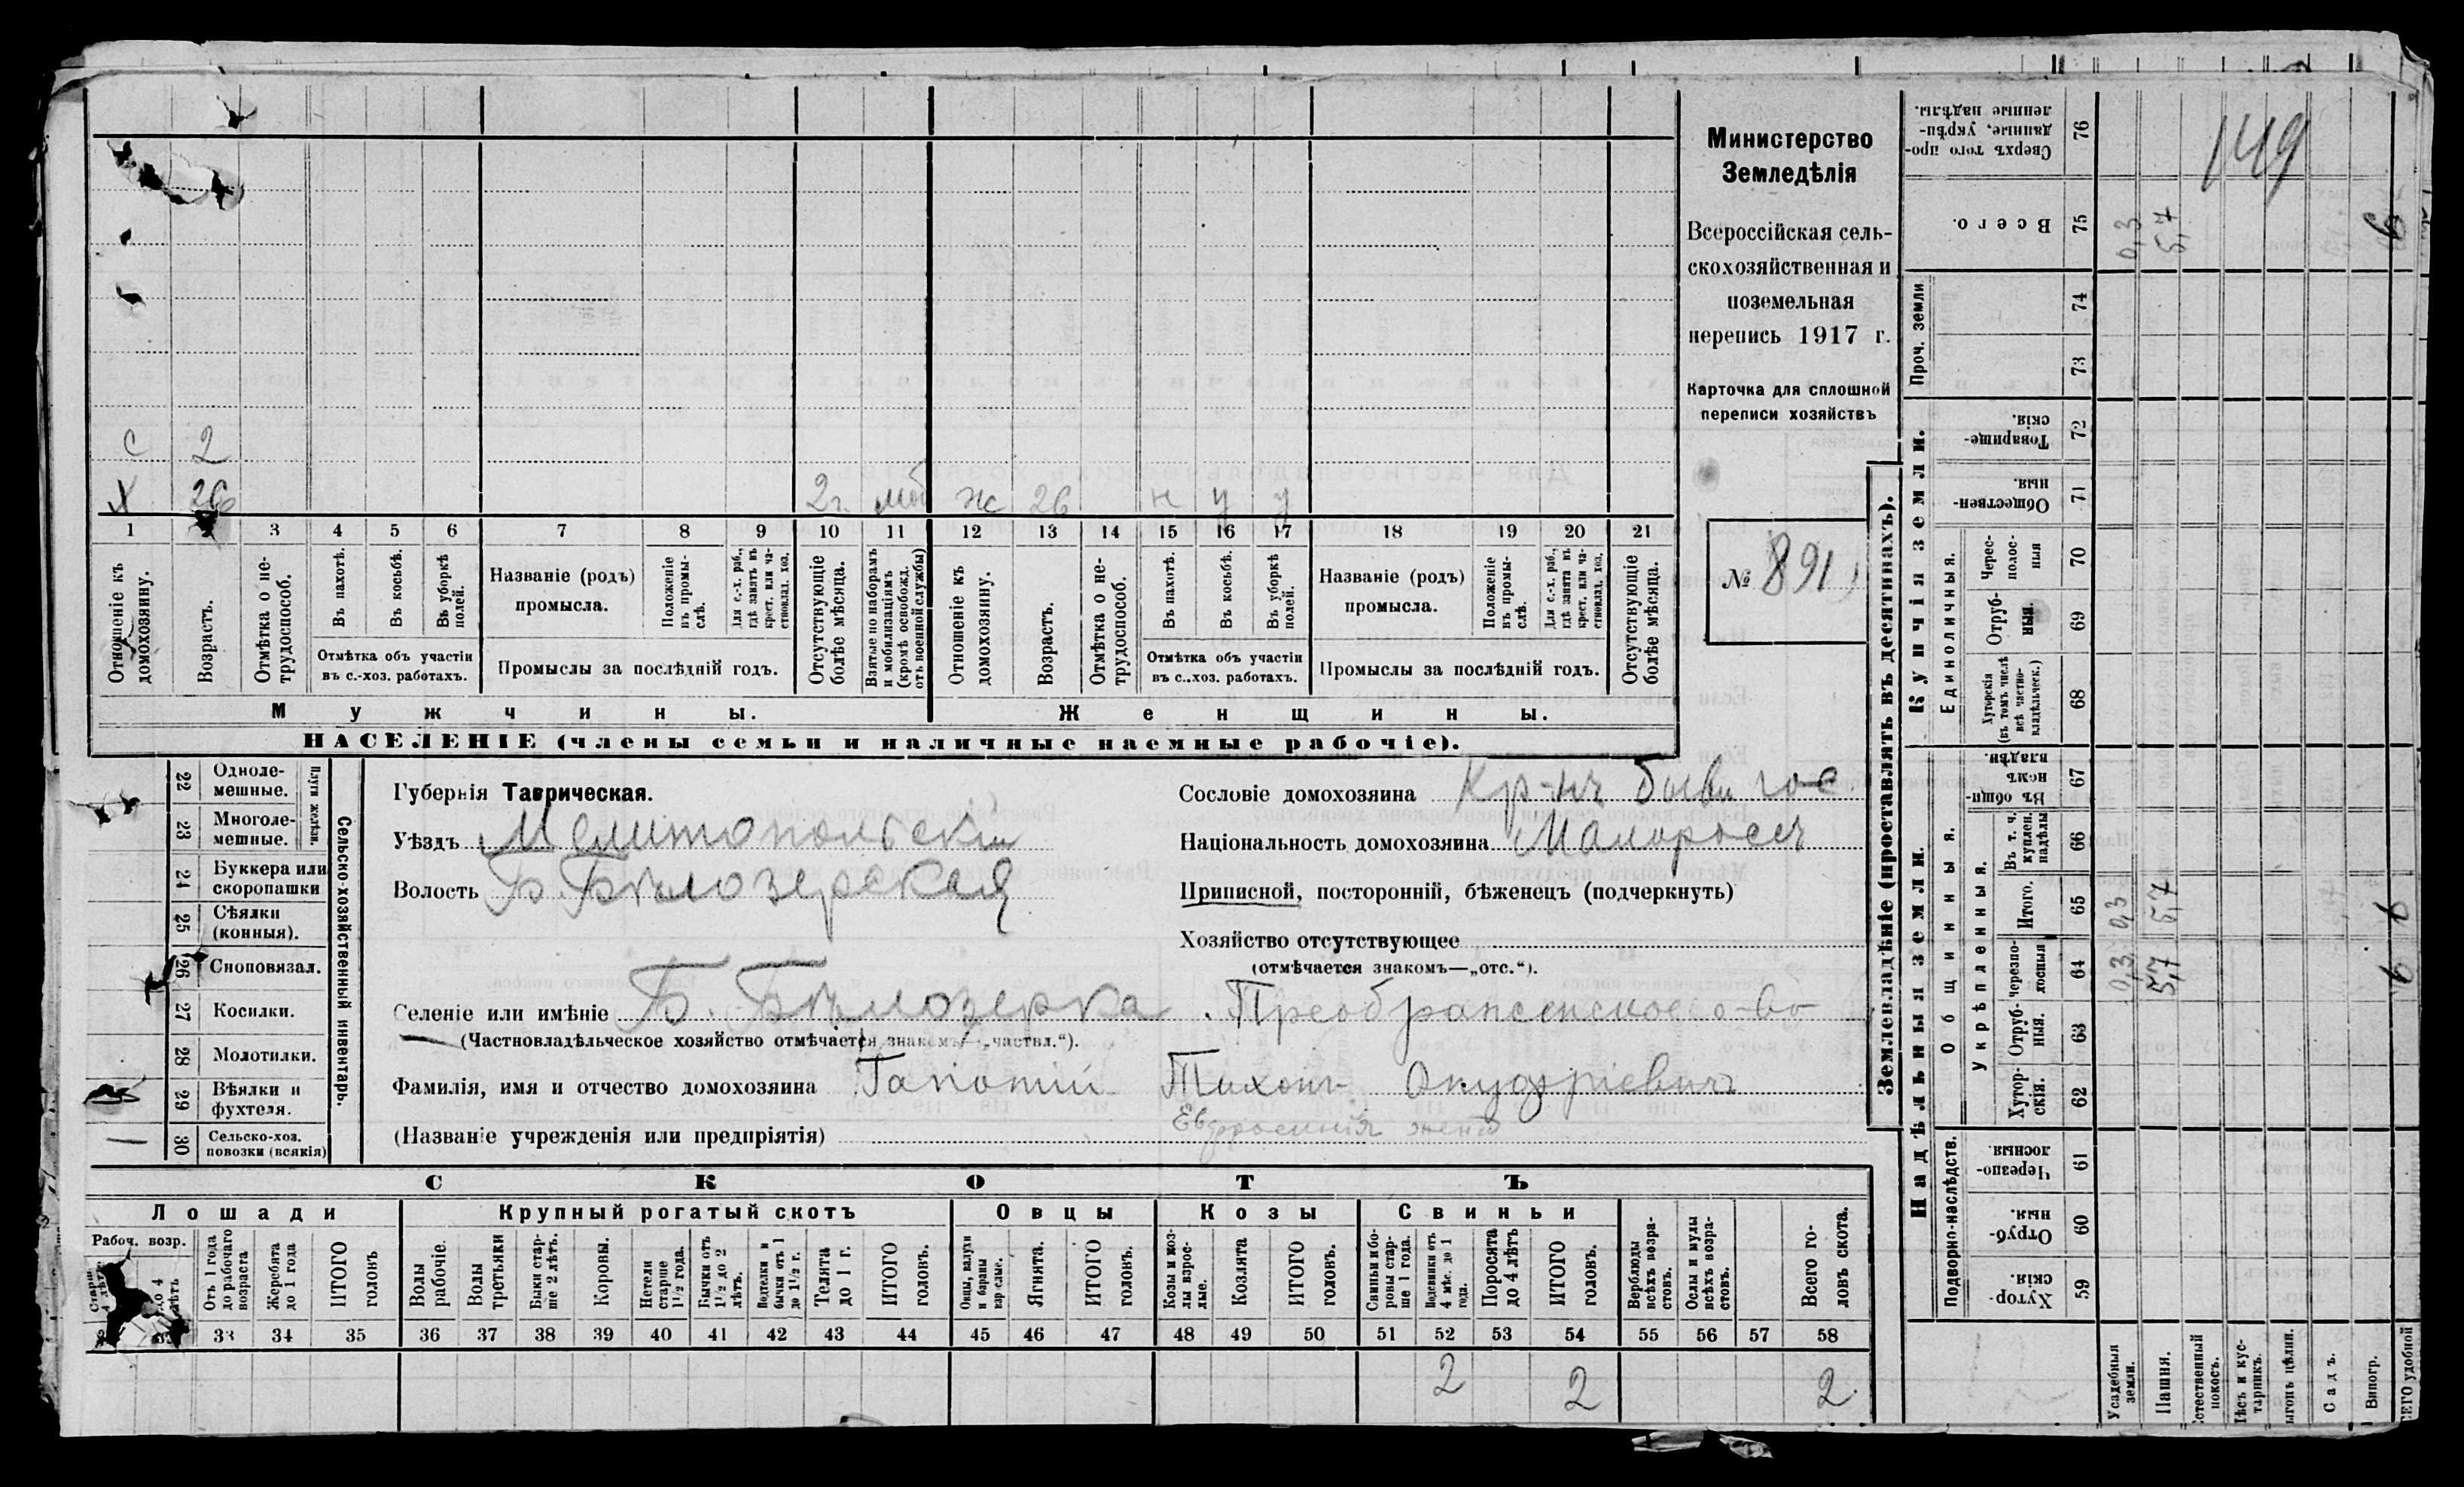 С 2
Х 26 2г. моб ж 26 н у у
1 3 4 5 6 7 8 9 10 11 12 13 14 15 16 17 18 19 20 21
Отношеніе къ домохозяину.
Возрастъ.
Отмѣтка о не-трудоспособ.
Въ пахотѣ.
Въ косьбѣ.
Въ уборкѣ полей.
Отмѣтка объ участіи
въ с.-хоз. работахъ.
Названіе (родъ)
промысла.
Положеніе въ промы-слѣ.
Для с.-х. раб., гдѣ занятъ въ крест. или ча-стновлад. хоз.
Промыслы за послѣдній годъ.
Отсутствующіе болѣе мѣсяца.
Взятые по наборамъ и мобилизаціямъ (кромѣ освобожд. отъ военной службы)
Отношеніе къ домохозяину.
Возрастъ.
Отмѣтка о не-трудоспособ.
Въ пахотѣ.
Въ косьбѣ.
Въ уборкѣ полей.
Отмѣтка объ участіи
въ с..хоз. работахъ.
Названіе (родъ)
промысла.
Положеніе въ промы-слѣ.
Для с.-х. раб., гдѣ занята въ крест. или ча-стновлад. хоз.
Промыслы за послѣдній годъ.
Отсутствующіе болѣе мѣсяца.
Мужчины. Женщины.
НАСЕЛЕНІЕ (члены семьи и наличные наемные рабочіе).
Министерство
Земледѣлія
Всероссійская сель-
скохозяйственная и
поземельная
перепись 1917 г.
Карточка для сплошной
переписи хозяйствъ
№ 891
Сельско-хозяйственный инвентарь.
Плуги желѣзн.
22 Одноле-
мешные.
23 Многоле-
мешные.
24 Буккера или
скоропашки
25 Сѣялки
(конныя).
26 Сноповязал.
27 Косилки.
28 Молотилки.
29 Вѣялки и
фухтеля.
30 Сельско-хоз.
повозки (всякія)
Губернія Таврическая.
Уѣздъ Мелитопольскій
Волость Б. Бѣлозерская
Селеніе или имѣніе Б. Бѣлозерка. Преображенское о-во
(Частновладѣльческое хозяйство отмѣчается знакомъ—„частвл.“).
Фамилія, имя и отчество домохозяина Тихонъ
(Названіе учрежденія или предпріятія) Евфросинія жена
Сословіе домохозяина Кр-нъ бывш гос.
Національность домохозяина Малороссъ
Приписной, посторонній, бѣженецъ (подчеркнуть)
Хозяйство отсутствующее
(отмѣчается знакомъ—„отс.“).
СКОТЪ
Лошади Крупный рогатый скотъ Овцы Козы Свиньи
Рабоч. возр.
Отъ 1 года до рабочаго возраста
Жеребята до 1 года
ИТОГО головъ
Волы рабочіе.
Волы третьяки
Быки стар-ше 2 лѣтъ.
Коровы.
Нетели старше 1½ года.
Бычки отъ 1½ до 2 лѣтъ.
Подтелки и бычки отъ 1 до 1½ г.
Телята до 1 г.
ИТОГО головъ.
Овцы, валухи и бараны взрослые.
Ягнята.
ИТОГО головъ.
Козы и коз-лы взрос-лые.
Козлята
ИТОГО головъ.
Свиньи и бо-ровы стар-ше 1 года.
Подсвинки отъ 4 мѣс. до 1 года.
Поросята до 4 лѣтъ
ИТОГО головъ.
Верблюды всѣхъ возра-стовъ.
Ослы и мулы всѣхъ возра-стовъ.
Всего го-ловъ скота.
33 34 35 36 37 38 39 40 41 42 43 44 45 46 47 48 49 50 51 52 53 54 55 56 57 58
2 2 2
Землевладѣніе (проставлять въ десятинахъ).
Надѣльныя земли.
Купчія земли.
Проч. земли
Подворно-наслѣдств.
Общинныя.
Укрѣпленныя.
Единоличныя.
Хутор-скія. 59
Отруб-ныя. 60
Черезпо-лосныя. 61
Хутор-скія. 62
Отруб-ныя. 63
черезпо-лосныя 64
Итого. 65
Въ т. ч. куплен. надѣлы 66
Въ общи-номъ владѣн. 67
Хуторскія (въ томъ числѣ всѣ частно-владѣльческ.) 68
Отруб-ныя. 69
Черес-полос-ныя 70
Обществен-ныя. 71
Товарище-скія. 72
73
74
Всего. 75
Сверхъ того про-данные, укрѣп-ленные надѣлы. 76
Усадебныя земли. 0,3 0,3 0,3
Пашня. 5,7 5,7 5,7
Естественный покосъ.
Лѣсъ и кус-тарникъ.
Выгонъ цѣлин.
Садъ.
Виногр.
ВСЕГО удобной 6 6 6
149